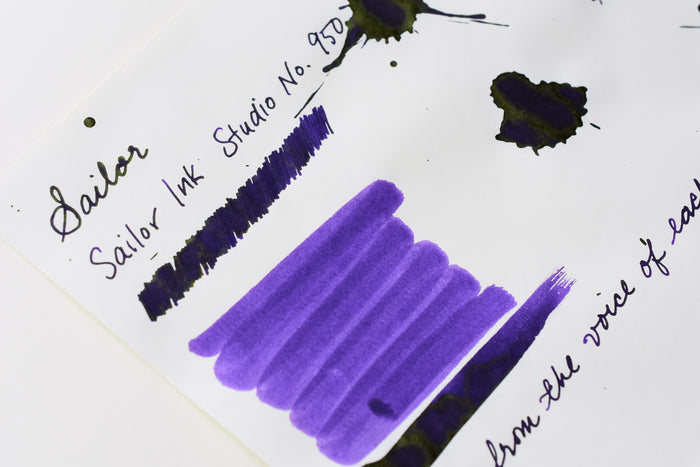 Sailor
Sailor Ink Studio No. 950
from the voice of each